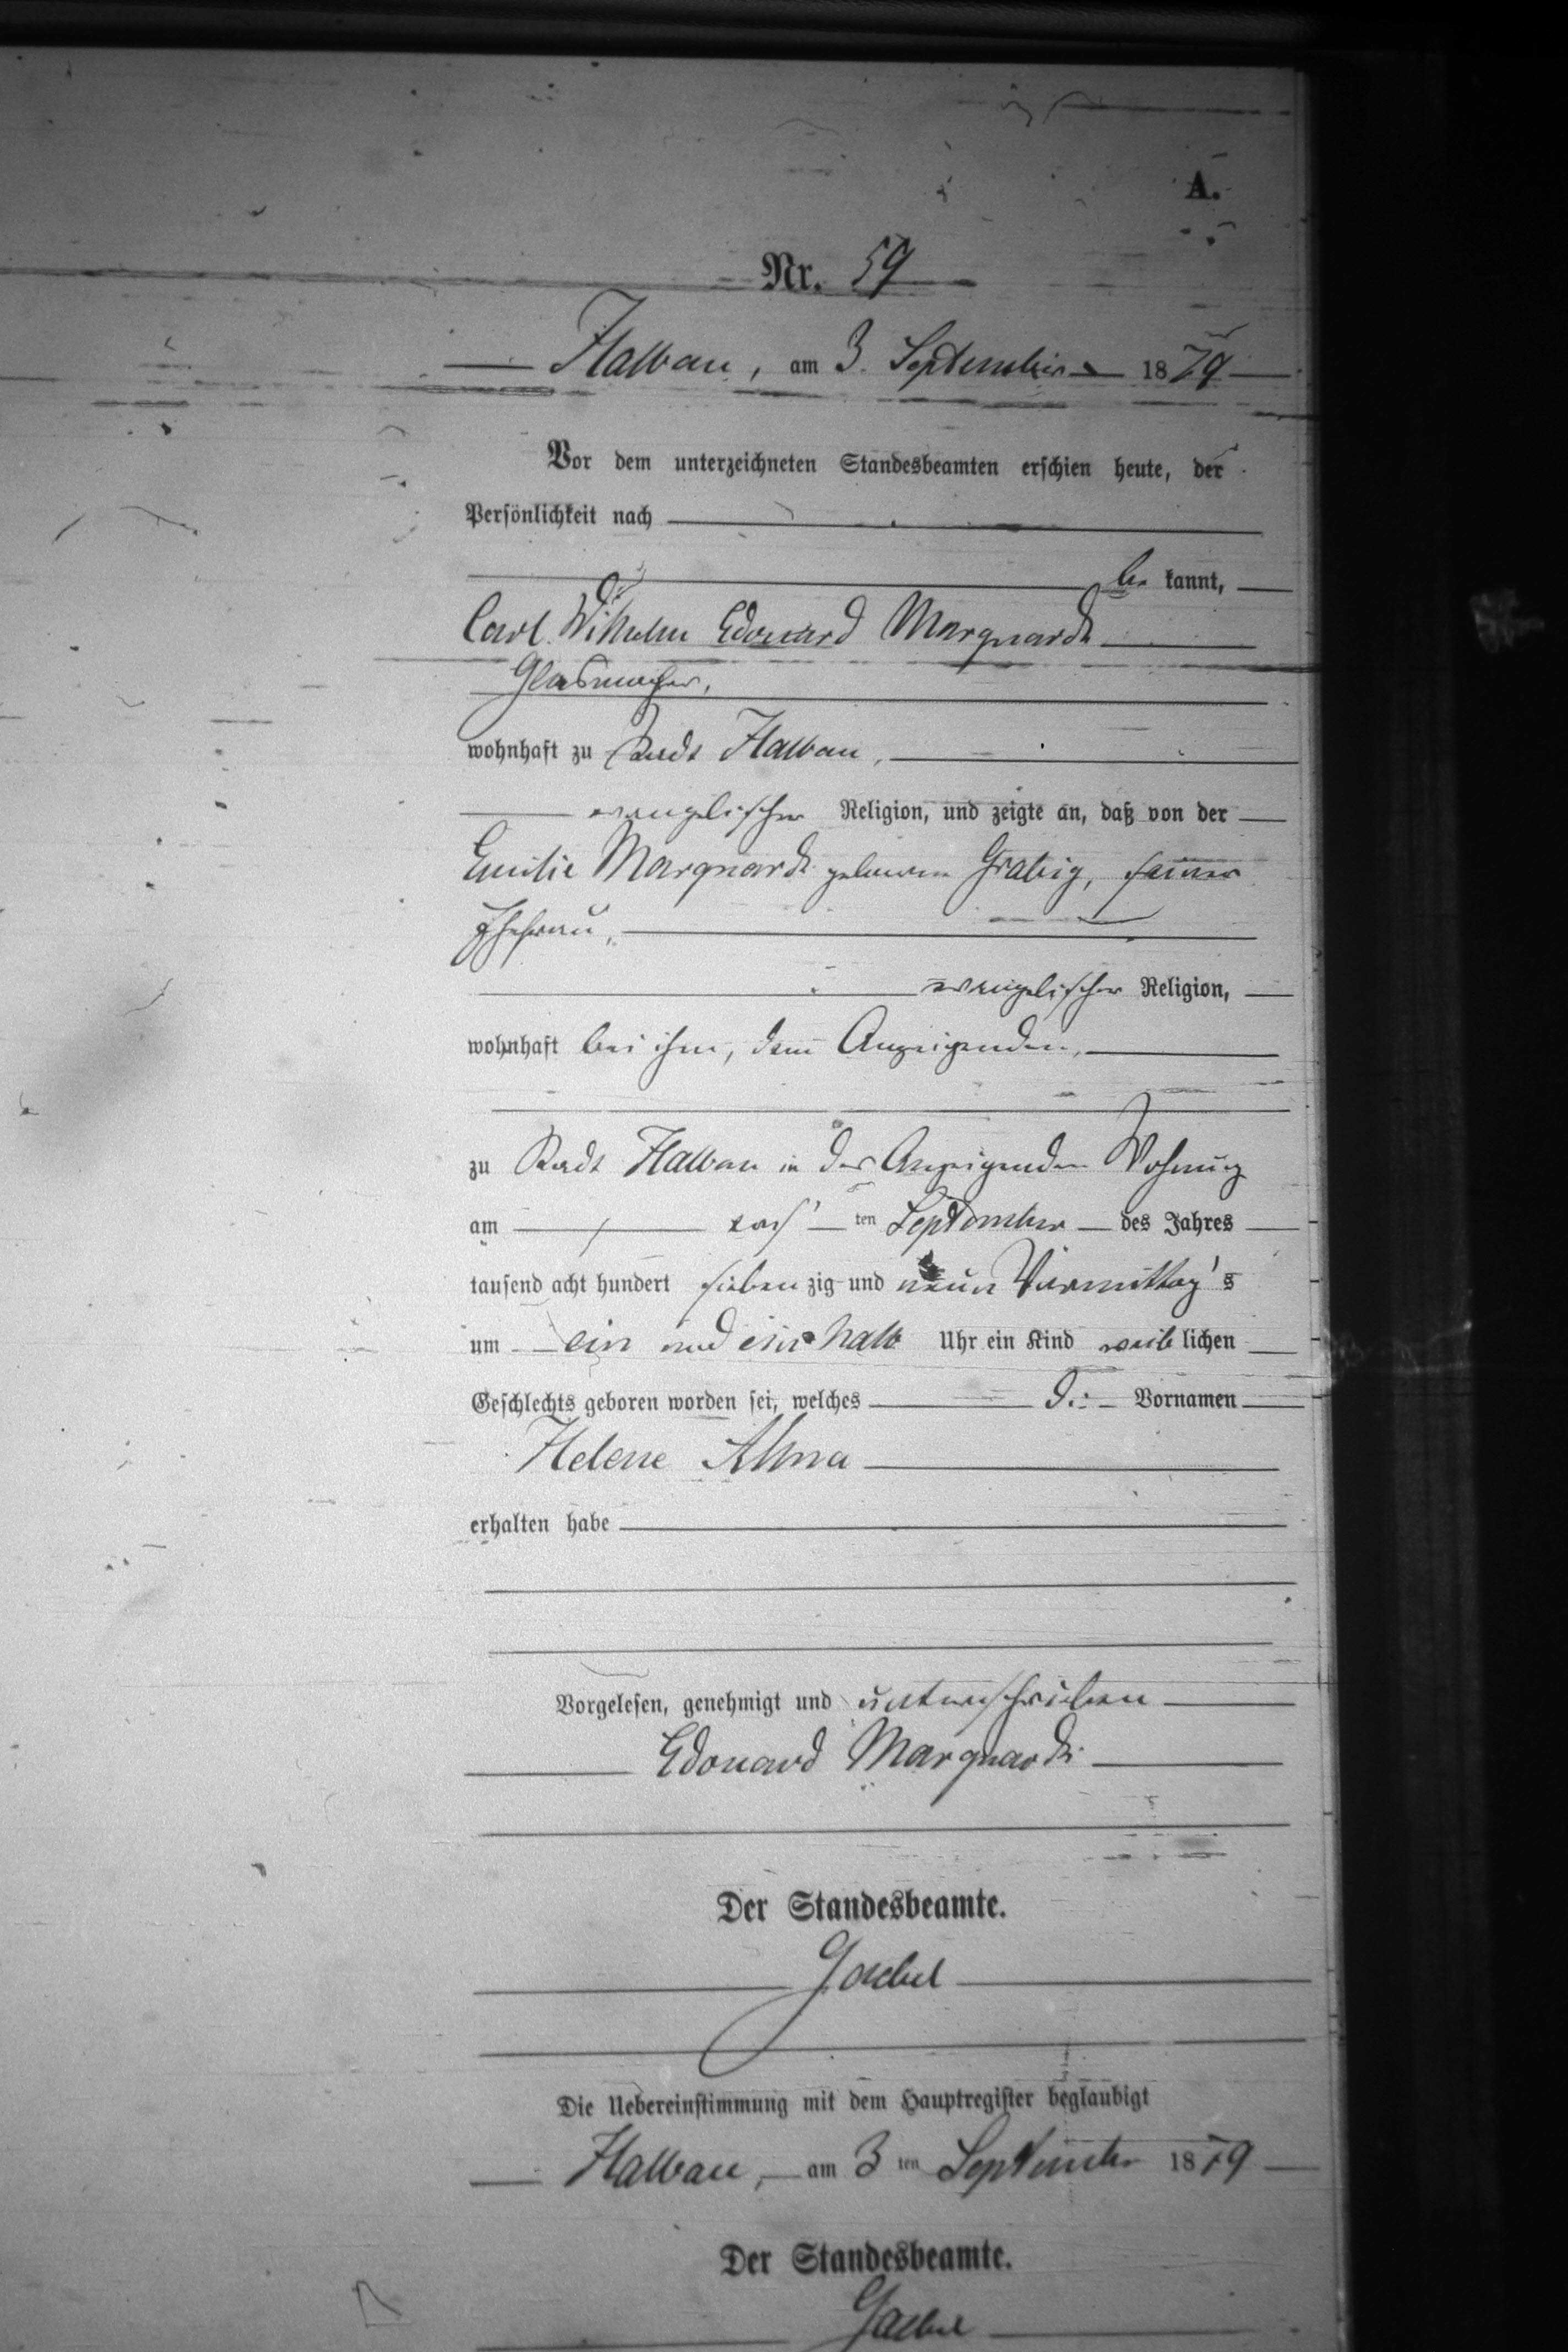 A.
Nr. 59
Halbau, am 3. September 1879
Vor dem unterzeichneten Standesbeamten erschien heute, der
Persönlichkeit nach
be kannt,
Carl Wilhelm Edouard Marquardt
Glasmacher,
wohnhaft zu Stadt Halbau,
evangelischer Religion, und zeigte an, daß von der
Emilie Marquardt geborene Grabig, seiner
Ehefrau,
evangelischer Religion,
wohnhaft bei ihm, dem Anzeigenden,
zu Stadt Halbau in des Anzeigenden Wohnung
am ten September des Jahres
tausend acht hundert sieben zig und neun Vormittag's
um ein und ein halb Uhr ein Kind weib lichen
Geschlechts geboren worden sei, welches die Vornamen
Helene Alma
erhalten habe
Vorgelesen, genehmigt und unterschrieben
Edouard Marquardt
Der Standesbeamte.
Goebel
Die Uebereinstimmung mit dem Hauptregister beglaubigt
Halbau, am 3 ten September 1879
Der Standesbeamte.
Goebel